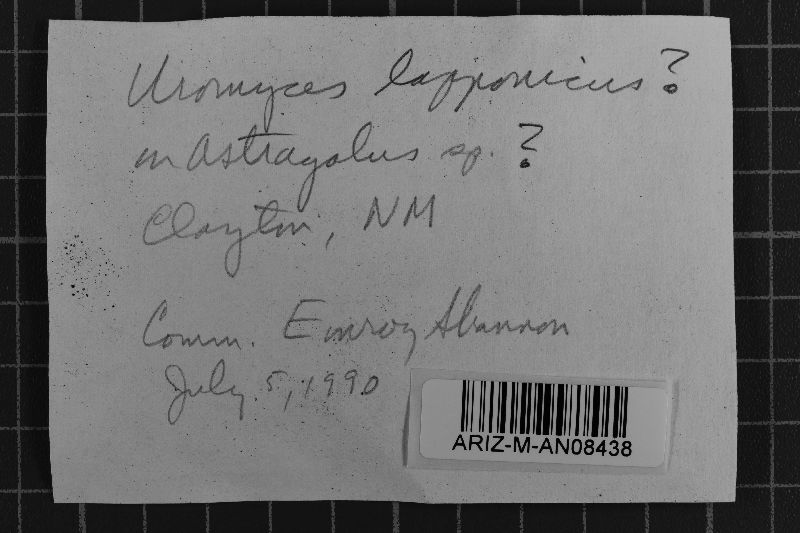 Uromyces lapponicus?
on Astragalus sp.?
Clayton, NM
Comm. Emroy Shannon
July 5, 1990
ARIZ-M-AN08438